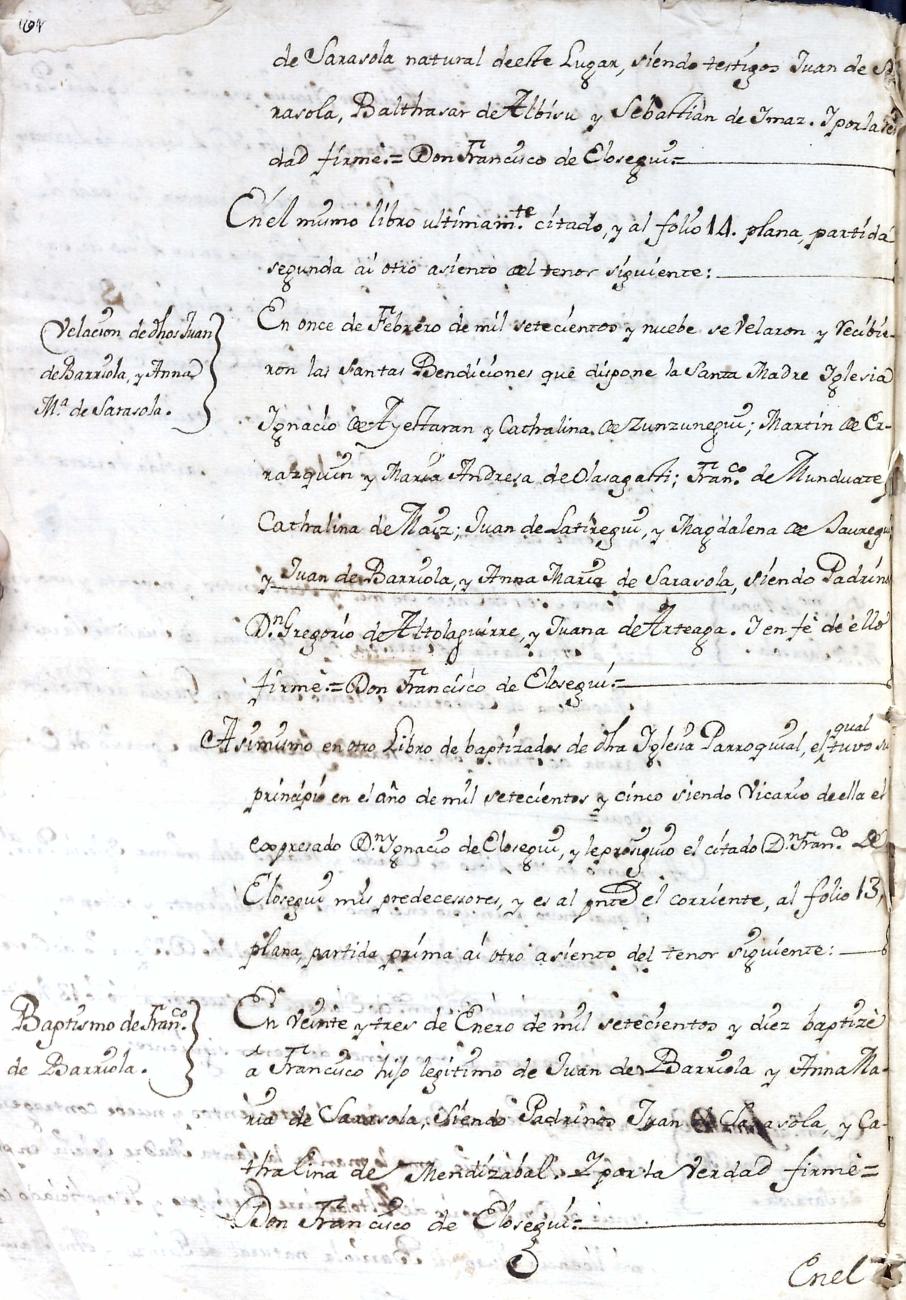 de Sarasola natural deeste Lugar, siendo testigos Juan de Sa-
rasola, Balthasar de Albisu y Sebastian de Imaz. I por la ver
dad firmè.= Don Francisco de Elosegui=
En el mismo libro ultimam.te citado, y al folio 14. plana partida
segunda ai otro asiento del tenor siguiente:
Velacion de dhos Juan
de Barriola, y Anna
M.a de Sarasola.
En once de Febrero de mil setecientos y nuebe se Velaron y recibie-
ron las Santas Bendiciones que dispone la Santa Madre Iglesia
Ignacio de Ayestaran y Cathalina de Zunzunegui; Martin de Er-
razquin y Maria Andresa de Olasagasti; Fran.co de Munduate y
Cathalina de Maiz; Juan de Latiregui, y Magdalena de Jauregui
y Juan de Barriola, y Anna Maria de Sarasola, siendo Padrinos
D.n Gregorio de Altolaguirre, y Juana de Arteaga. I en fè de ello
firmè.= Don Francisco de Elosegui.=
Asimismo en otro Libro de baptizados de dha Iglesia Parroquial, el qual tuvo su
principio en el año de mil setecientos y cinco siendo Vicario de ella el
expresado D.n Ignacio de Elosegui, y le prosiguio el citado D.n Fran.co de
Elosegui mis predecessores, y es al pnte el corriente, al folio 13,
plana partida prima ai otro asiento del tenor siguiente:
Baptismo de Fran.co
de Barriola.
En Veinte y tres de Enero de mil setecientos y diez baptizè
a Francisco hijo legitimo de Juan de Barriola y Anna Ma-
ria de Sarasola, siendo Padrinos Juan de Sarasola, y Ca-
thalina de Mendizabal. I por la Verdad firmè=
Don Francisco de Elosegui.=
En el